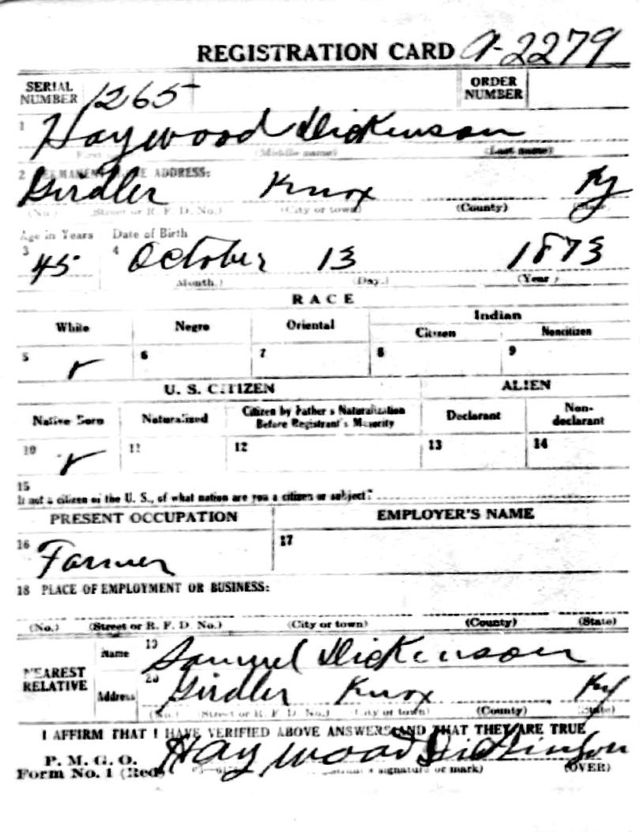 REGISTRATION CARD A-2279
SERIAL NUMBER 1265 ORDER NUMBER
1 Haywood Dickenson
(Middle name) (Last name)
2 PERMANENT HOME ADDRESS:
Girdler Knox Ky
(No.) (Street or R. F. D. No.) (City or town) (County) (State)
Age in Years Date of Birth
3 45 4 October 13 1873
(Month.) (Day.) (Year)
RACE
White Negro Oriental Indian
Citizen Noncitizen
5 ✓ 6 7 8 9
U. S. CITIZEN ALIEN
Native Born Naturalized Citizen by Father's Naturalization Before Registrant's Majority Declarant Non-declarant
10 ✓ 11 12 13 14
15
If not a citizen of the U. S., of what nation are you a citizen or subject?
PRESENT OCCUPATION EMPLOYER'S NAME
16 Farmer 17
18 PLACE OF EMPLOYMENT OR BUSINESS:
(No.) (Street or R. F. D. No.) (City or town) (County) (State)
NEAREST RELATIVE Name 19 Samuel Dickenson
Address 20 Girdler Knox Ky
(No.) (Street or R. F. D. No.) (City or town) (County) (State)
I AFFIRM THAT I HAVE VERIFIED ABOVE ANSWERS AND THAT THEY ARE TRUE
P. M. G. O.
Form No. 1 (Red) Haywood Dickinson
signature or mark) (OVER)